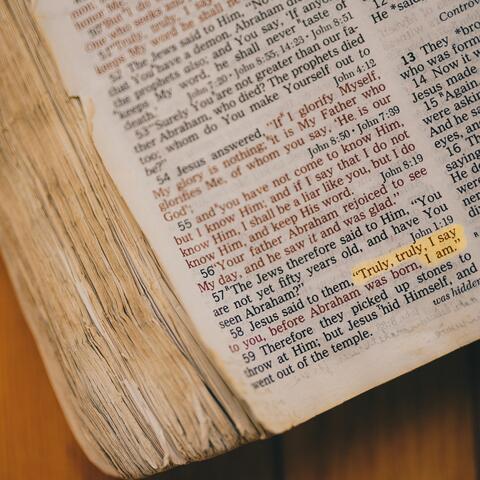 who seeks and
51 "Truly, truly, I say
keeps My word he shall
52 The Jews said to Him, "Now
that You have a demon. Abraham di
the prophets also; and You say, 'If anyone
keeps My word, he shall never taste of
death.'
John 7:20 · John 8:55; 14:23 · John 8:51
53 "Surely You are not greater than our fa-
ther Abraham, who died? The prophets died
too; whom do You make Yourself out to
be?"
John 4:12
54 Jesus answered, "If I glorify Myself,
My glory is nothing; it is My Father who
glorifies Me, of whom you say, 'He is our
God';
John 8:50 · John 7:39
55 and you have not come to know Him,
but I know Him; and if I say that I do not
know Him, I shall be a liar like you, but I do
know Him, and keep His word.
John 8:19
56 "Your father Abraham rejoiced to see
My day, and he saw it and was glad."
57 "The Jews therefore said to Him, "You
are not yet fifty years old, and have You
seen Abraham?"
John 1:19
58 Jesus said to them, "Truly, truly, I say
to you, before Abraham was born, I am."
59 Therefore they picked up stones to
throw at Him; but Jesus hid Himself, and
went out of the temple.
He
Contro
13 They
who was form
14 Now it w
Jesus made
15 "Again
were askin
And he sa
eyes, and
16 Th
saying
He do
were
was hidden